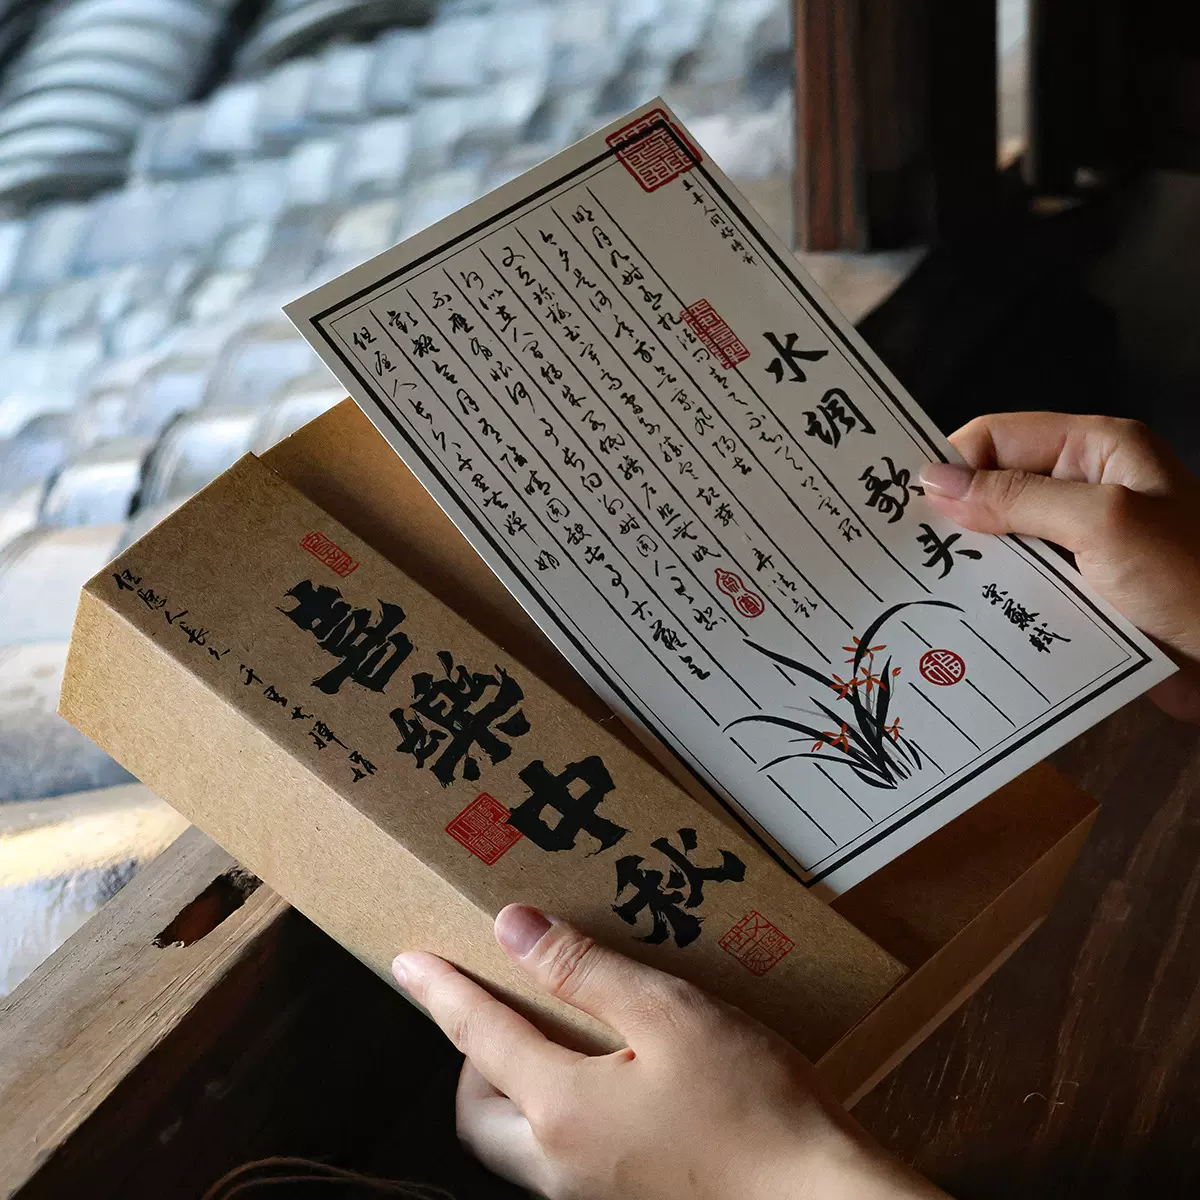 水调歌头
宋蘇軾
明月几时有把酒问青天不知天上宫阙
今夕是何年我欲乘风归去
又恐琼楼玉宇高处不胜寒起舞弄清影
何似在人间转朱阁低绮户照无眠
不应有恨何事长向别时圆人有悲
欢离合月有阴晴圆缺此事古难全
但愿人长久千里共婵娟
喜樂中秋
但愿人長久千里共婵娟